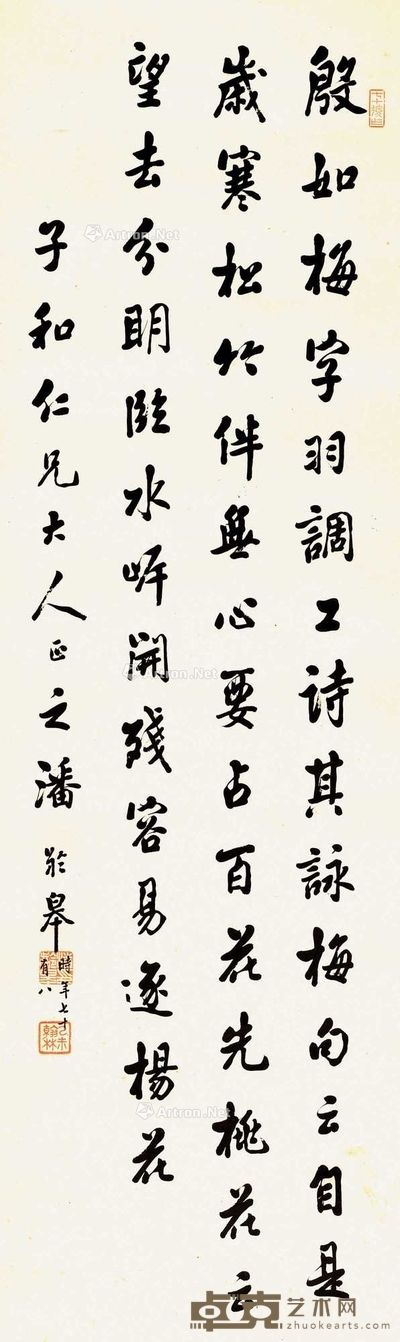 殷如梅字羽調工詩其詠梅句云自是
歲寒松竹伴無心要占百花先桃花云
望去分明臨水岸開殘容易逐楊花
子和仁兄大人正之潘齡皋
時年七十
有八
翰林
Artron.Net
Artron.Net
Artron.Net
Artron.Net
卓克艺术网
zhuokearts.com